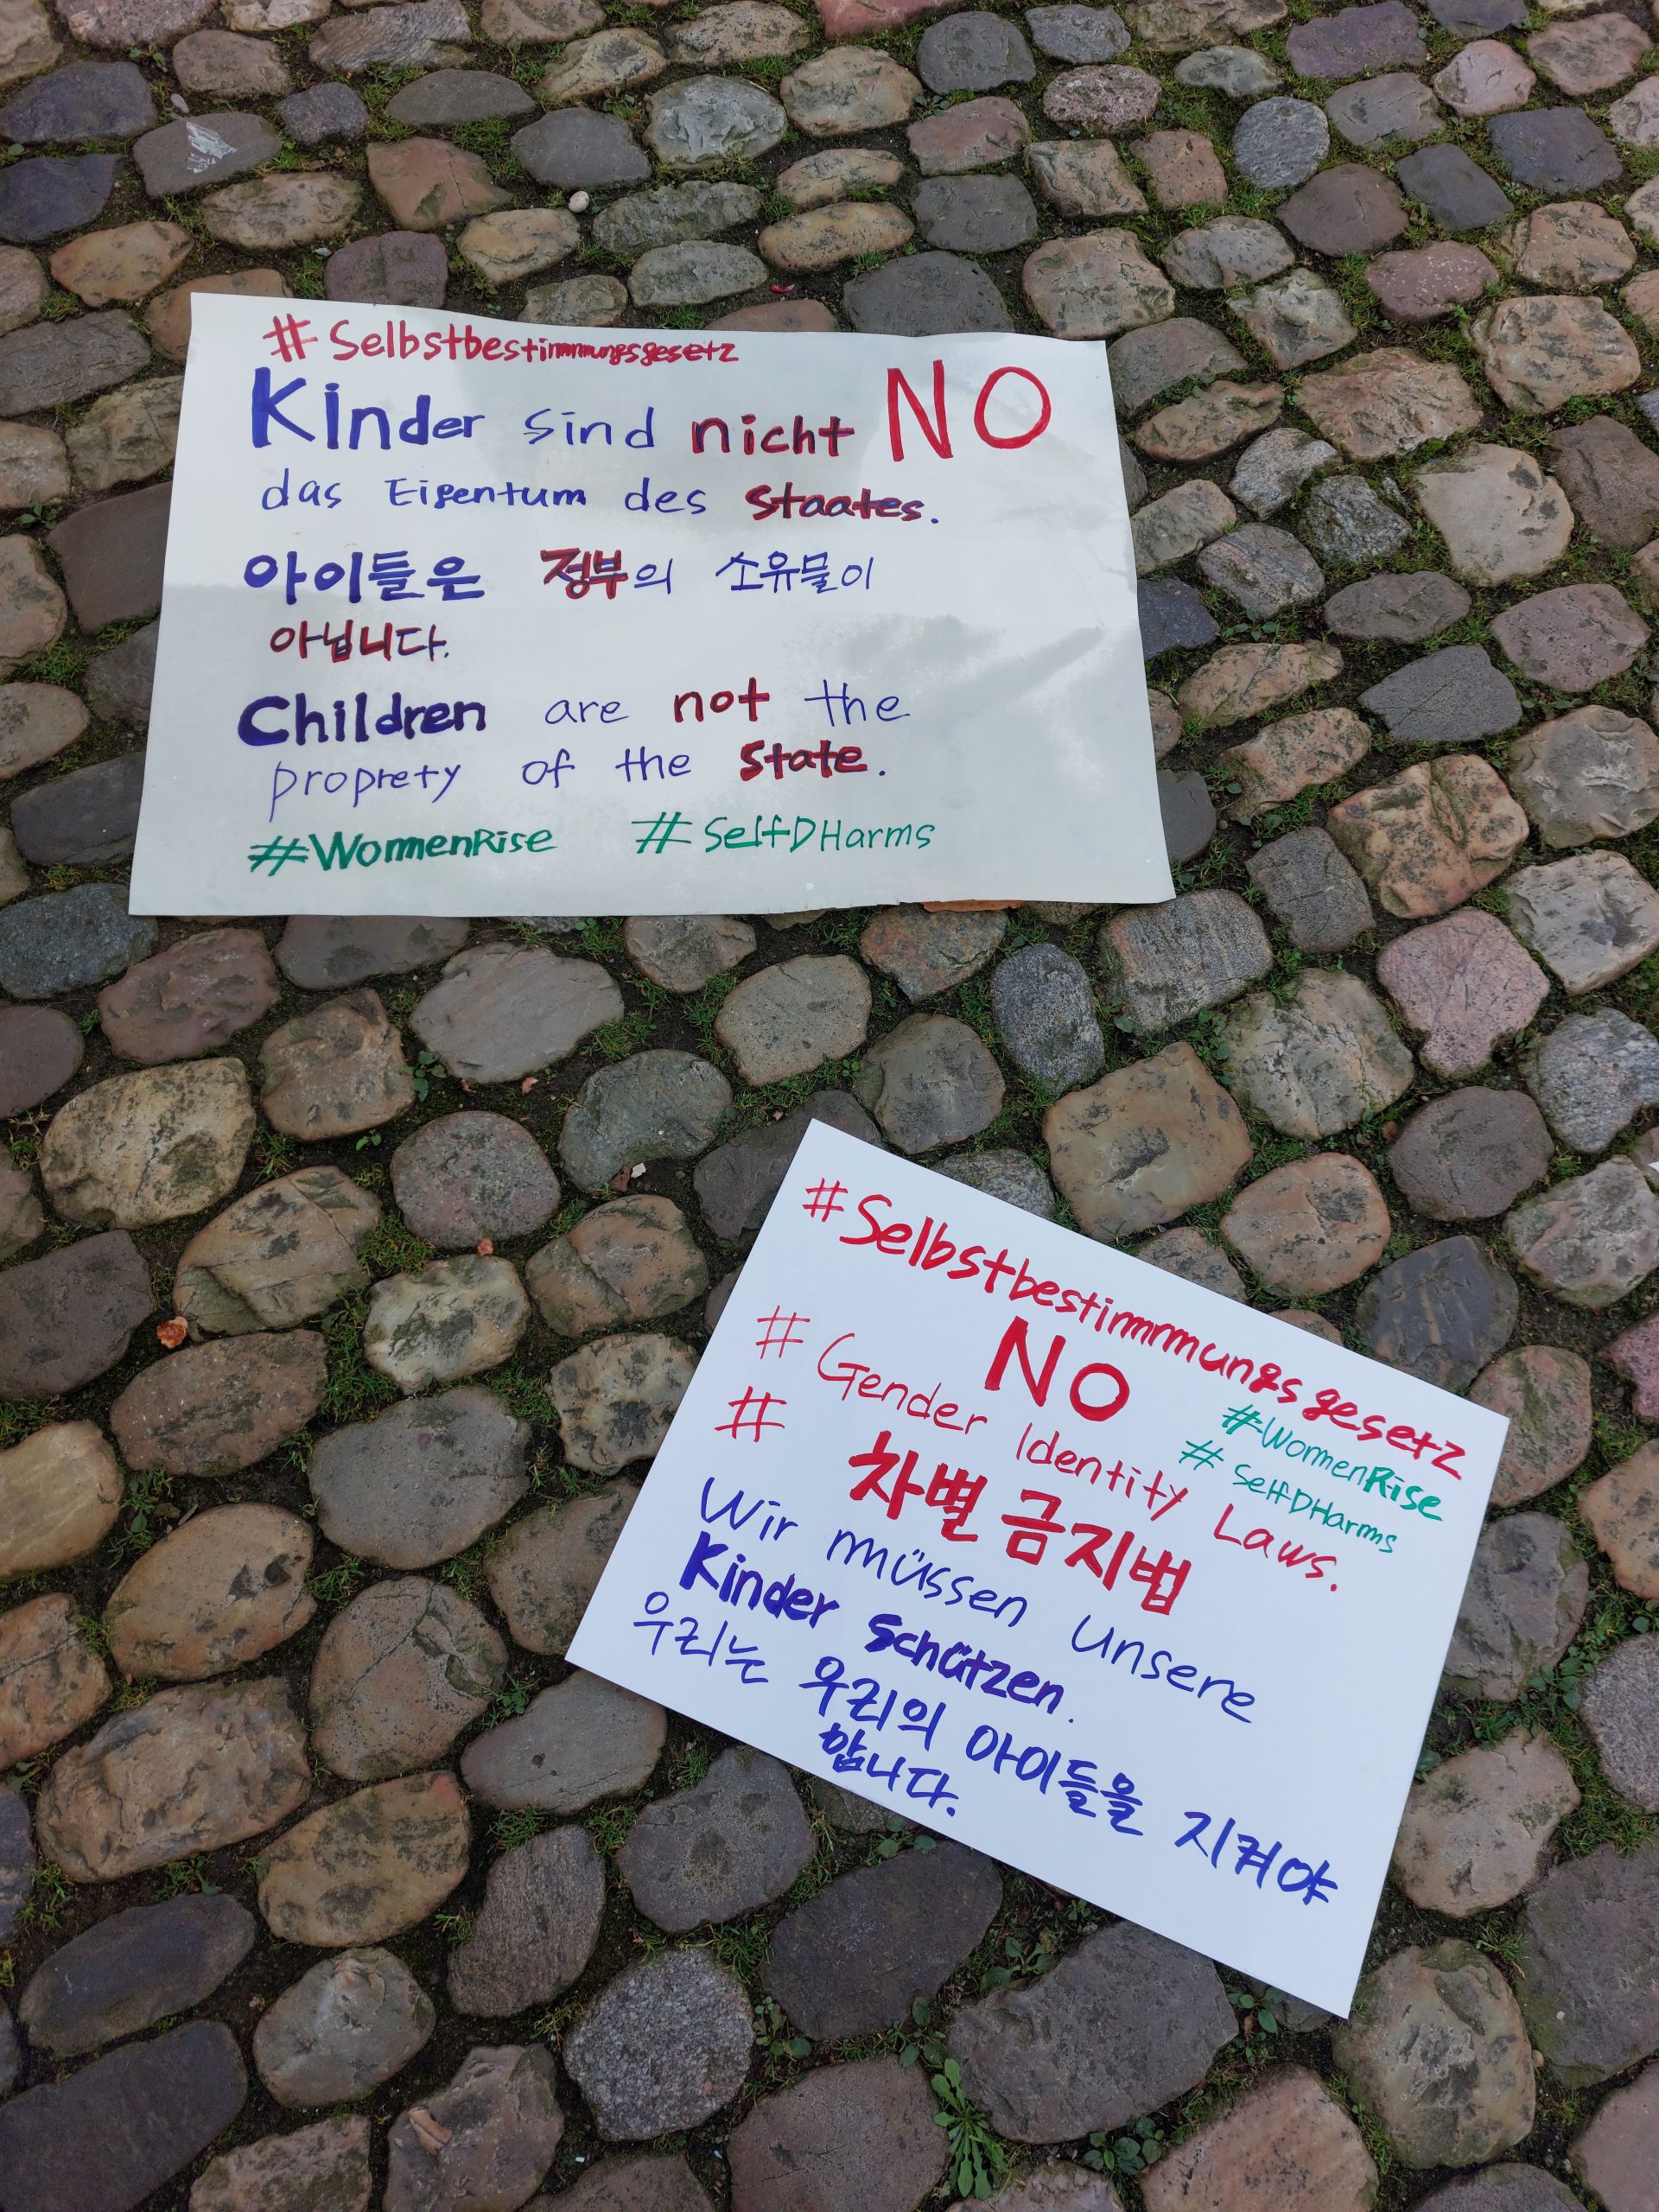 #Selbstbestimmungsgesetz
Kinder sind nicht NO
das Eigentum des Staates.
아이들은 정부의 소유물이
아닙니다.
Children are not the
proprety of the State.
#WomenRise #SelfDHarms
#Selbstbestimmungsgesetz
NO
#WomenRise
# Gender Identity Laws.
# SelfDHarms
# 차별금지법
Wir müssen unsere
Kinder schützen.
우리는 우리의 아이들을 지켜야
합니다.